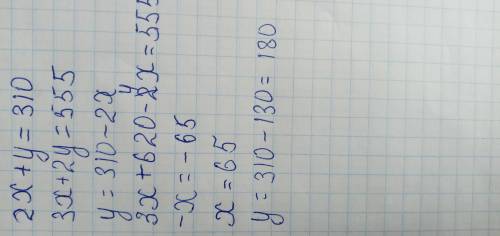 2x+y=310
3x+2y=555
y=310-2x
3x+620-4x=555
-x=-65
x=65
y=310-130=180